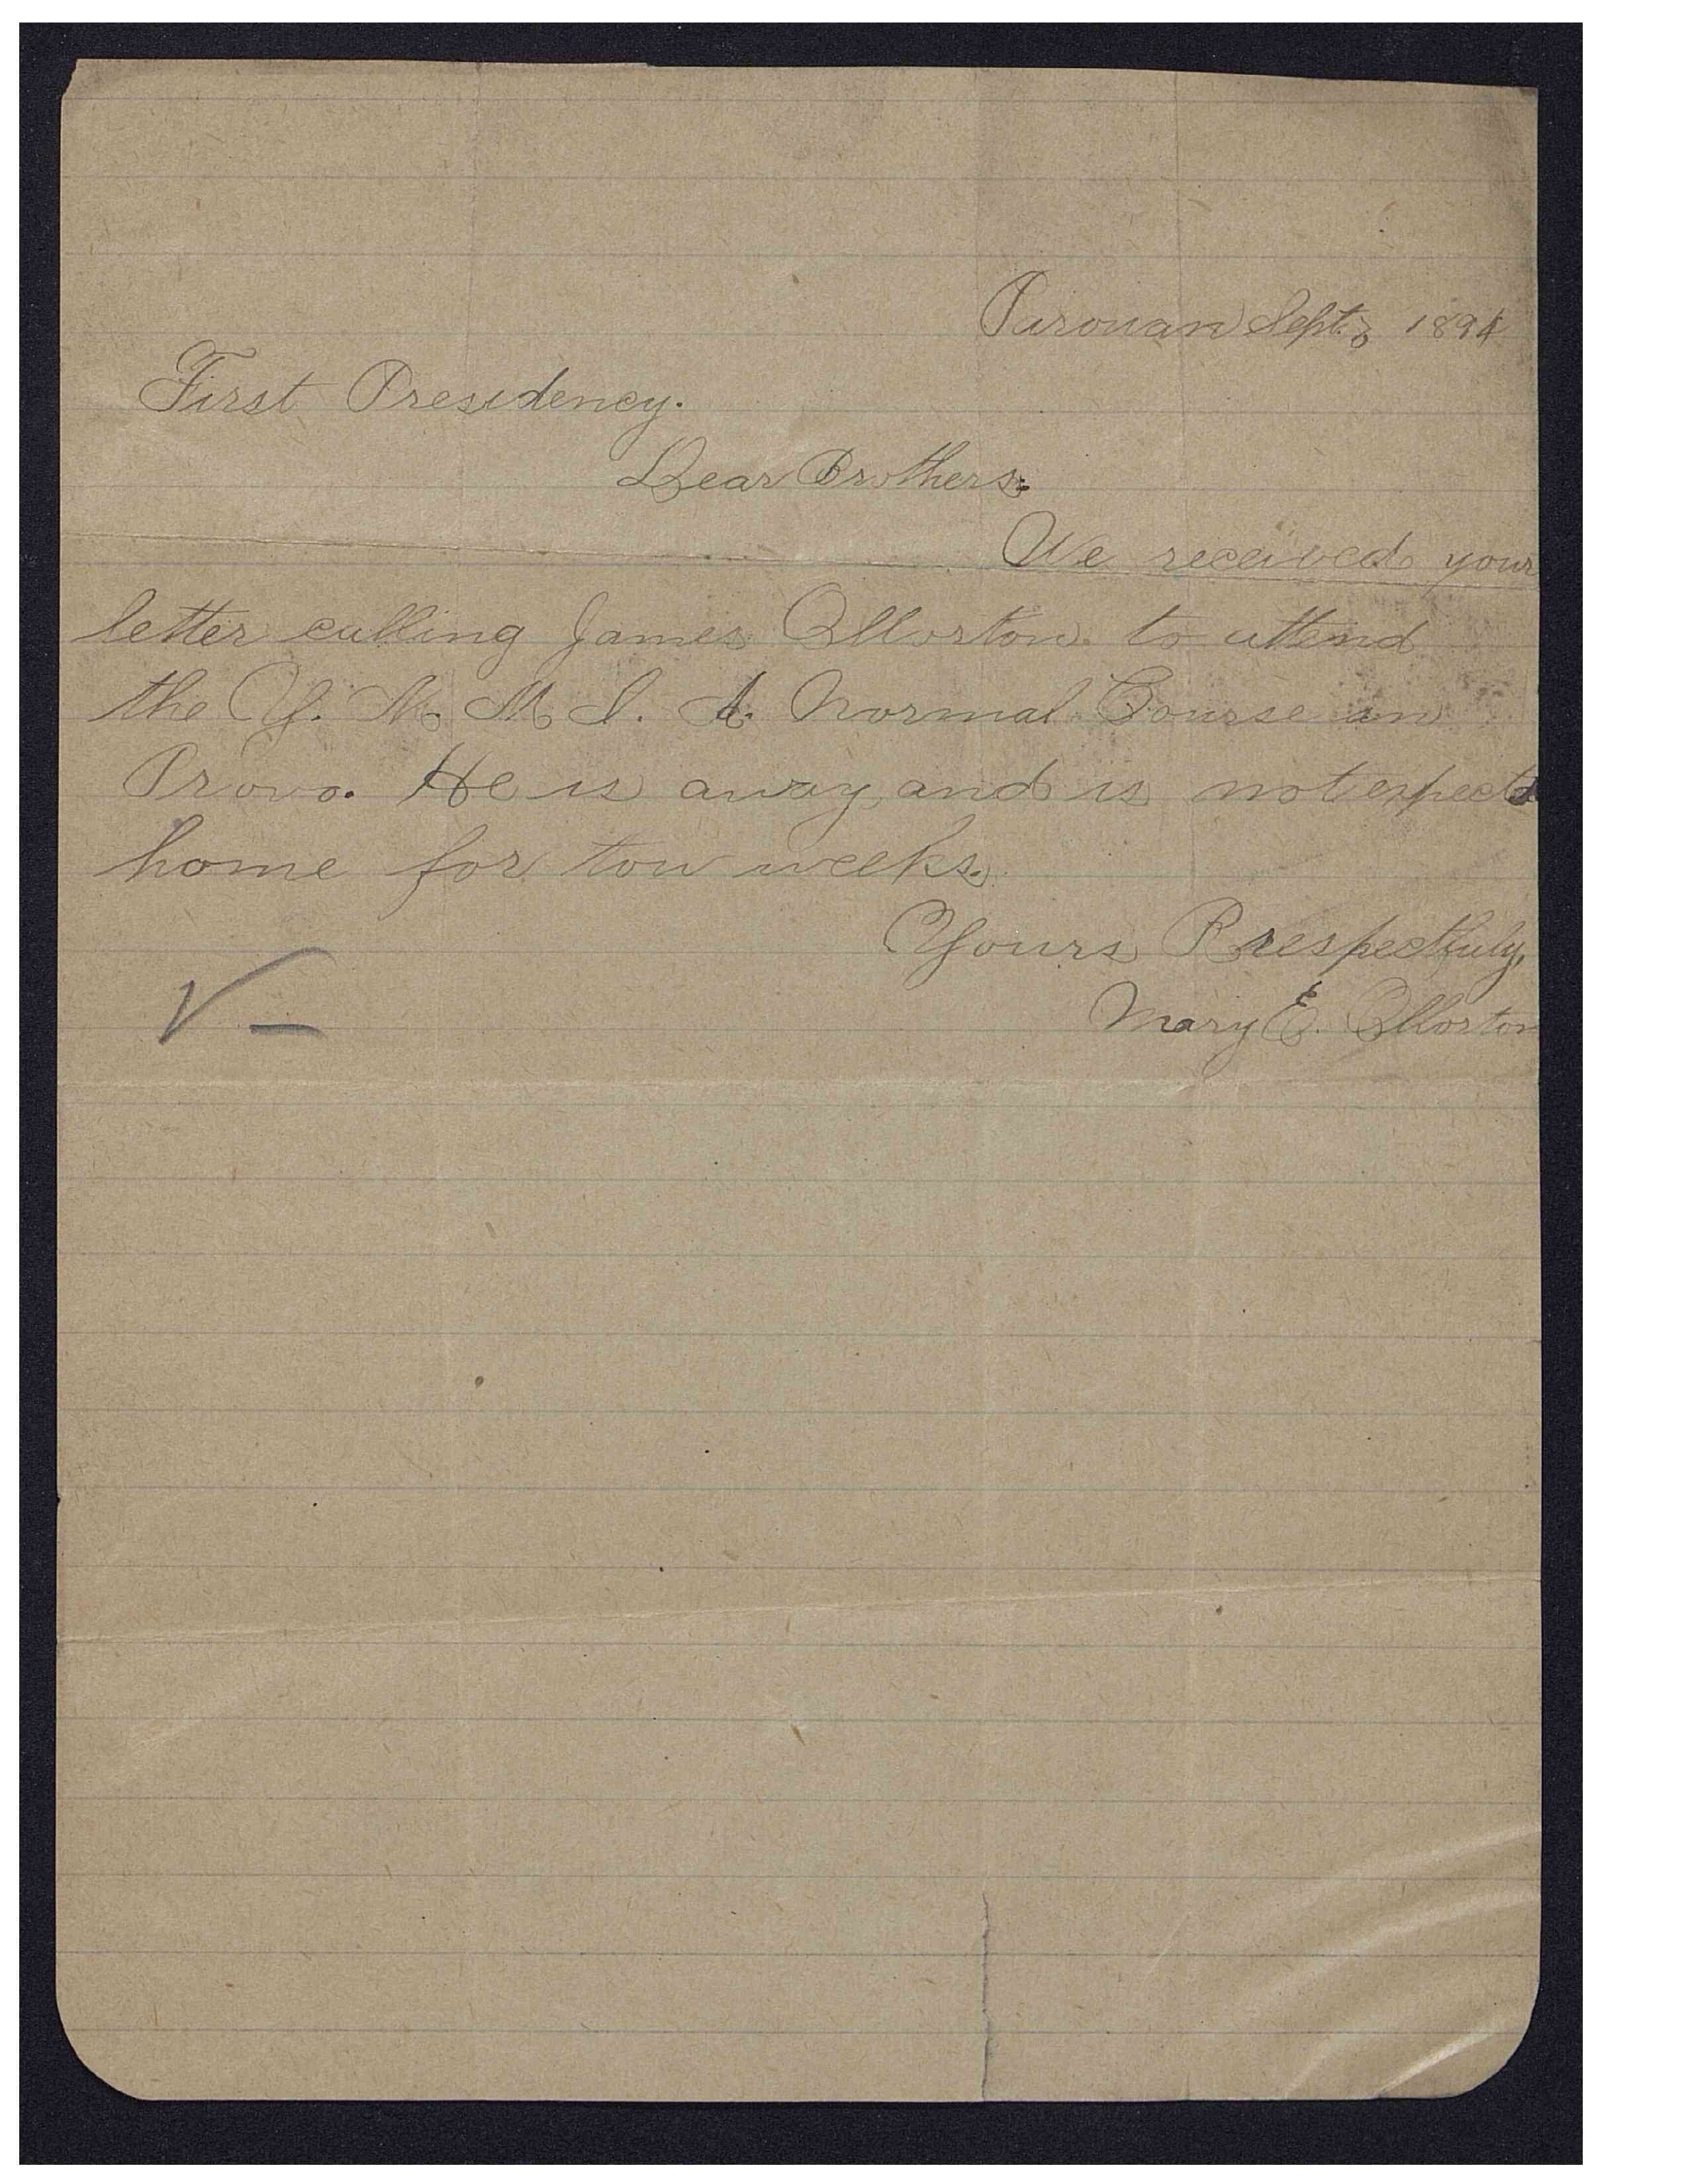 Parowan Sept. 3 1894
First Presidency.
Dear Brothers:
We received your
letter calling James Ollorton to attend
the Y. M. M. I. A. Normal Course an
Provo. He is away and is not expectd
home for tow weeks.
Yours Rrespectfuly,
Mary E. Ollorton